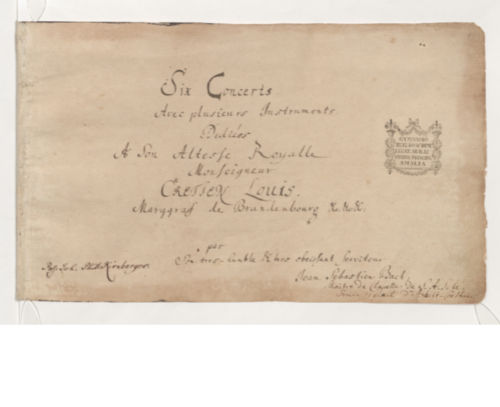 Six Concerts
Avec plusieurs Instruments.
Dediées
A Son Altesse Royalle
Monseigneur
CRETIEN LOUIS.
Marggraf de Brandenbourg &c. &c. &c.
par
Son tres-humble & tres obeissant Serviteur
Jean Sebastien Bach
Maitre de Chapelle de S. A. S. le
Prince regnant d'Anhalt-Coethen.
Kirnberger.
AMALIA